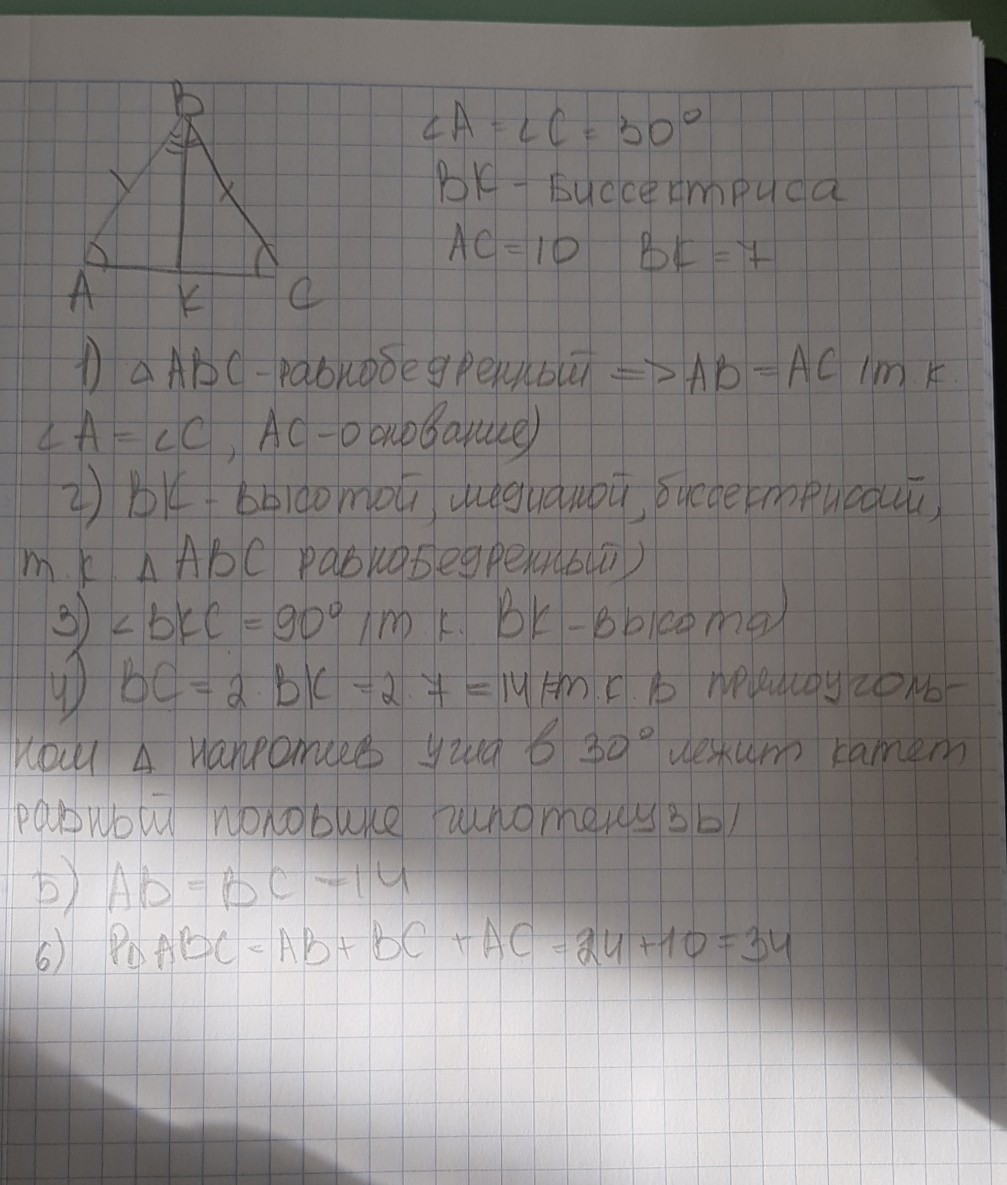 B
∠A = ∠C = 30°
BK - Биссектриса
AC = 10 BK = 7
A K C
1) △ ABC - равнобедренный => AB = AC (т.к.
∠A = ∠C, AC - основание)
2) BK - высотой, медианой, биссектрисой,
т.к. △ ABC равнобедренный)
3) ∠BKC = 90° (т.к. BK - высота)
4) BC = 2·BK = 2·7 = 14 (т.к. в прямоуголь-
ном △ напротив угла в 30° лежит катет
равный половине гипотенузы)
5) AB = BC = 14
6) P△ABC = AB + BC + AC = 24 + 10 = 34